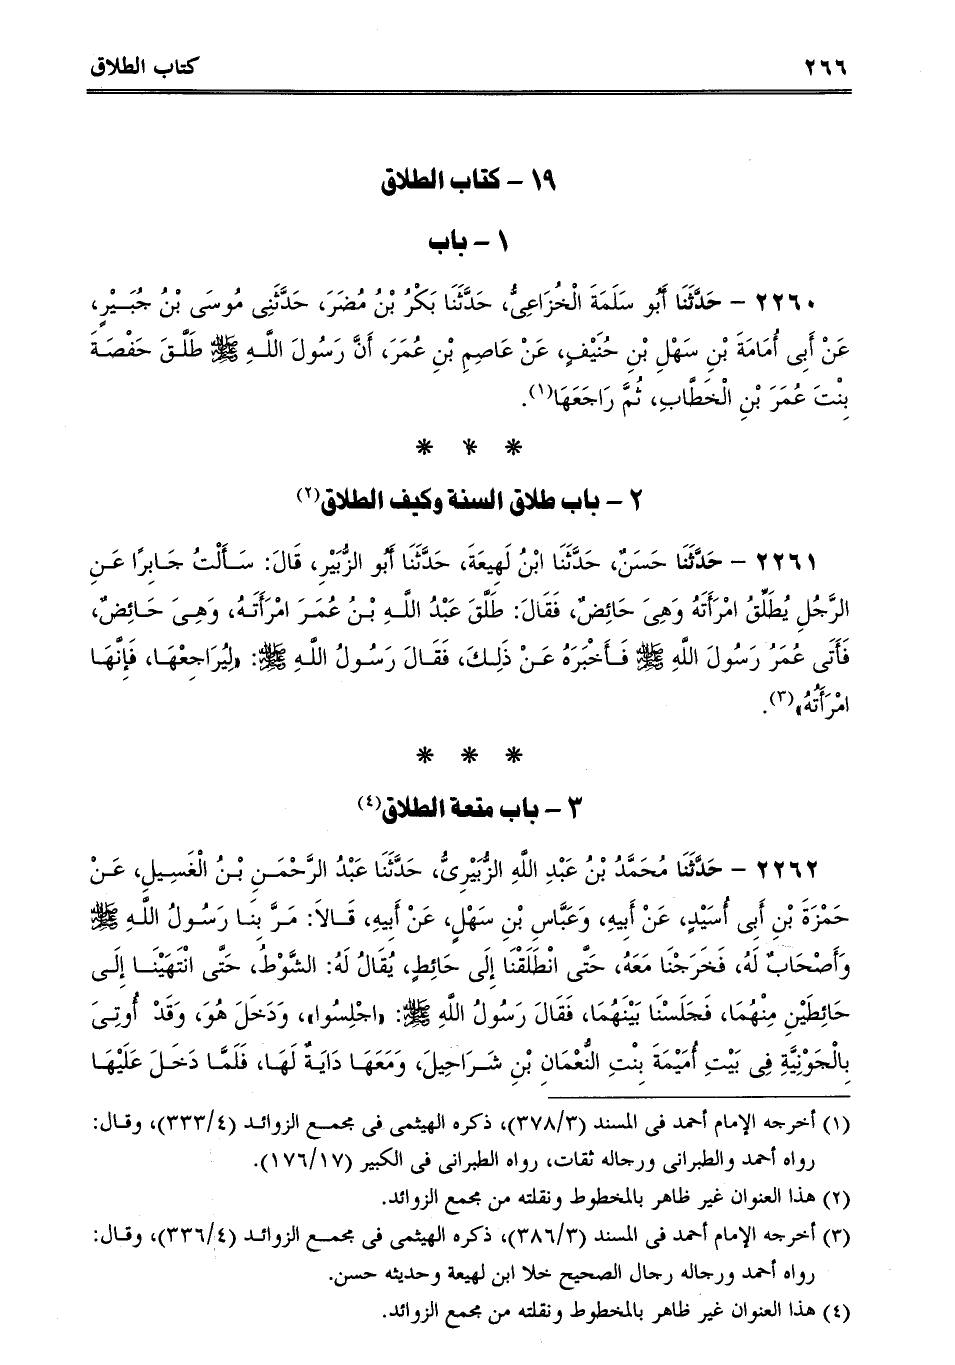 ٢٦٦ كتاب الطلاق
١٩ – كتاب الطلاق
١ – باب
٢٢٦٠ – حَدَّثَنَا أَبُو سَلَمَةَ الْخُزَاعِىُّ، حَدَّثَنَا بَكْرُ بْنُ مُضَرَ، حَدَّثَنِى مُوسَى بْنُ جُبَيْرٍ،
عَنْ أَبِى أُمَامَةَ بْنِ سَهْلِ بْنِ حُنَيْفٍ، عَنْ عَاصِمِ بْنِ عُمَرَ، أَنَّ رَسُولَ اللَّهِ ﷺ طَلَّقَ حَفْصَةَ
بِنْتَ عُمَرَ بْنِ الْخَطَّابِ، ثُمَّ رَاجَعَهَا(١).
* * *
٢ – باب طلاق السنة وكيف الطلاق(٢)
٢٢٦١ – حَدَّثَنَا حَسَنٌ، حَدَّثَنَا ابْنُ لَهِيعَةَ، حَدَّثَنَا أَبُو الزُّبَيْرِ، قَالَ: سَأَلْتُ جَابِرًا عَنِ
الرَّجُلِ يُطَلِّقُ امْرَأَتَهُ وَهِىَ حَائِضٌ، فَقَالَ: طَلَّقَ عَبْدُ اللَّهِ بْنُ عُمَرَ امْرَأَتَهُ، وَهِىَ حَائِضٌ،
فَأَتَى عُمَرُ رَسُولَ اللَّهِ ﷺ فَأَخْبَرَهُ عَنْ ذَلِكَ، فَقَالَ رَسُولُ اللَّهِ ﷺ: «لِيُرَاجِعْهَا، فَإِنَّهَا
امْرَأَتُهُ»(٣).
* * *
٣ – باب متعة الطلاق(٤)
٢٢٦٢ – حَدَّثَنَا مُحَمَّدُ بْنُ عَبْدِ اللَّهِ الزُّبَيْرِىُّ، حَدَّثَنَا عَبْدُ الرَّحْمَنِ بْنُ الْغَسِيلِ، عَنْ
حَمْزَةَ بْنِ أَبِى أُسَيْدٍ، عَنْ أَبِيهِ، وَعَبَّاسِ بْنِ سَهْلٍ، عَنْ أَبِيهِ، قَالاَ: مَرَّ بِنَا رَسُولُ اللَّهِ ﷺ
وَأَصْحَابٌ لَهُ، فَخَرَجْنَا مَعَهُ، حَتَّى انْطَلَقْنَا إِلَى حَائِطٍ، يُقَالُ لَهُ: الشَّوْطُ، حَتَّى انْتَهَيْنَا إِلَى
حَائِطَيْنِ مِنْهُمَا، فَجَلَسْنَا بَيْنَهُمَا، فَقَالَ رَسُولُ اللَّهِ ﷺ: «اجْلِسُوا»، وَدَخَلَ هُوَ، وَقَدْ أُوتِىَ
بِالْجَوْنِيَّةِ فِى بَيْتِ أُمَيْمَةَ بِنْتِ النُّعْمَانِ بْنِ شَرَاحِيلَ، وَمَعَهَا دَايَةٌ لَهَا، فَلَمَّا دَخَلَ عَلَيْهَا
(١) أخرجه الإمام أحمد فى المسند (٣٧٨/٣)، ذكره الهيثمى فى مجمع الزوائد (٣٣٣/٤)، وقال:
رواه أحمد والطبرانى ورجاله ثقات، رواه الطبرانى فى الكبير (١٧٦/١٧).
(٢) هذا العنوان غير ظاهر بالمخطوط ونقلته من مجمع الزوائد.
(٣) أخرجه الإمام أحمد فى المسند (٣٨٦/٣)، ذكره الهيثمى فى مجمع الزوائد (٣٣٦/٤)، وقال:
رواه أحمد ورجاله رجال الصحيح خلا ابن لهيعة وحديثه حسن.
(٤) هذا العنوان غير ظاهر بالمخطوط ونقلته من مجمع الزوائد.